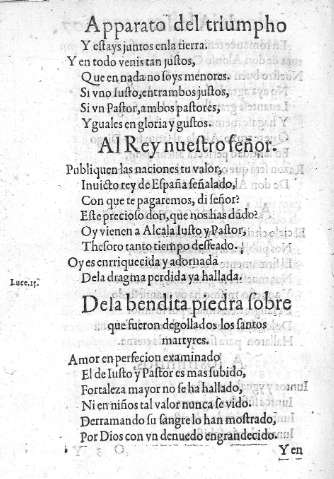 Apparato del triumpho
Y estays juntos enla tierra.
Y en todo venis tan justos,
Que en nada no soys menores.
Si vno Iusto, entrambos justos,
Si vn Pastor, ambos pastores,
Yguales en gloria y gustos.
Al Rey nuestro señor.
Publiquen las naciones tu valor,
Inuicto rey de España señalado,
Con que te pagaremos, di señor?
Este precioso don, que nos has dado?
Oy vienen a Alcala Iusto y Pastor,
Thesoro tanto tiempo desseado.
Oy es enrriquecida y adornada
Luce.15.
Dela dragma perdida ya hallada.
Dela bendita piedra sobre
que fueron degollados los santos
martyres.
Amor en perfecion examinado
El de Iusto y Pastor es mas subido,
Fortaleza mayor no se ha hallado,
Ni en niños tal valor nunca se vido.
Derramando su sangre lo han mostrado,
Por Dios con vn denuedo engrandecido.
Y en